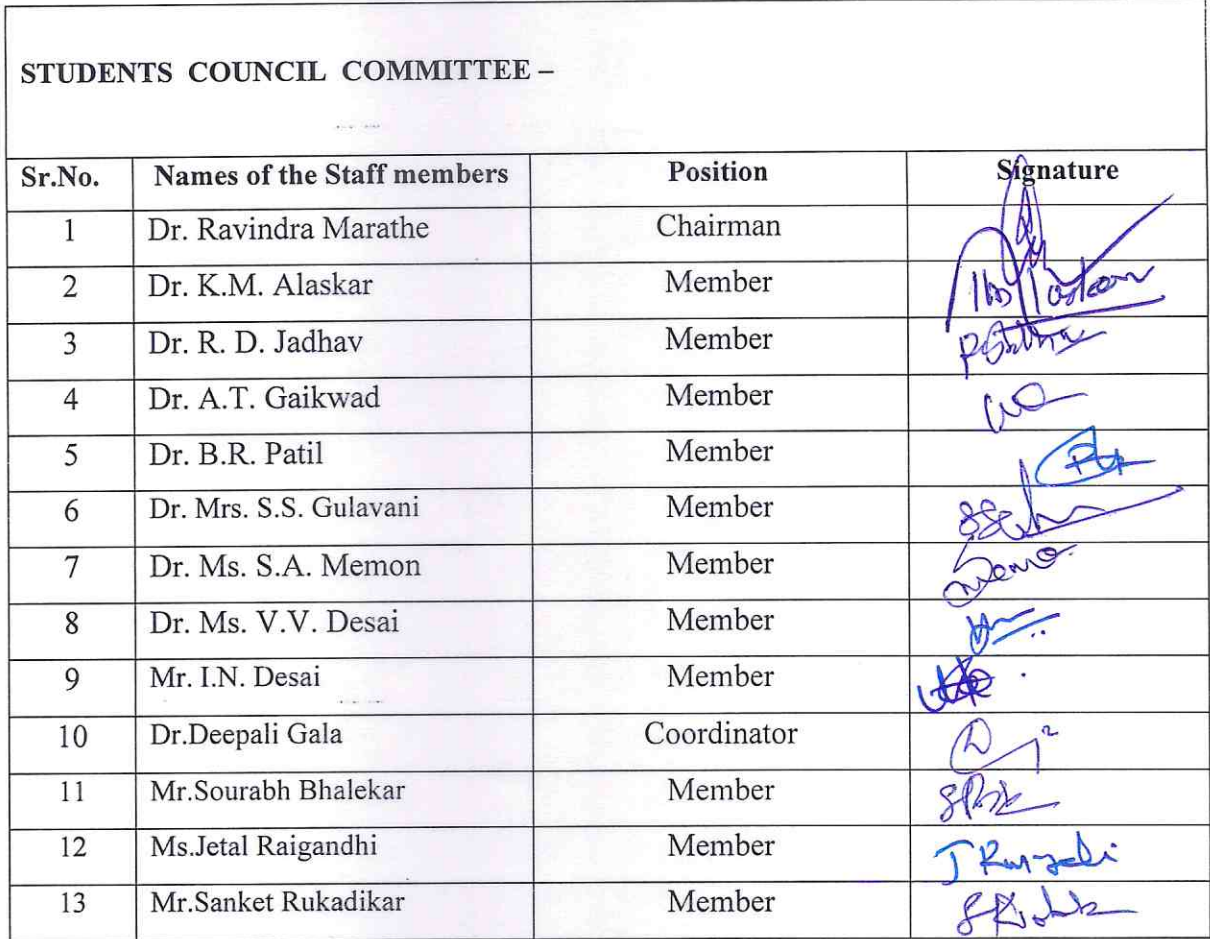 STUDENTS COUNCIL COMMITTEE –
Sr.No. Names of the Staff members Position Signature
1 Dr. Ravindra Marathe Chairman
2 Dr. K.M. Alaskar Member
3 Dr. R. D. Jadhav Member
4 Dr. A.T. Gaikwad Member
5 Dr. B.R. Patil Member
6 Dr. Mrs. S.S. Gulavani Member
7 Dr. Ms. S.A. Memon Member
8 Dr. Ms. V.V. Desai Member
9 Mr. I.N. Desai Member
10 Dr.Deepali Gala Coordinator
11 Mr.Sourabh Bhalekar Member
12 Ms.Jetal Raigandhi Member
13 Mr.Sanket Rukadikar Member